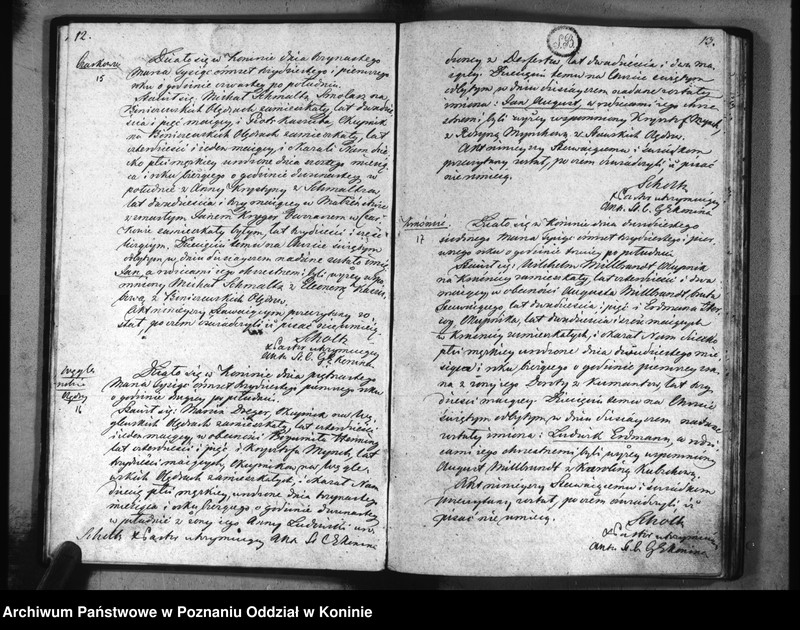 12.
15
Działo się w Koninie dnia trzynastego
Marca tysiąc ośmset trzydziestego i pierwszego
roku o godzinie czwartey po południu.
Stawił się Michał Schmalta
zamieszkały, lat dwadzie-
ścia i pięć maiący i Piotr Okupnik
na Biniszewskich Olędrach zamieszkały, lat
czterdzieści i ieden maiący i okazali Nam dzie-
cko płci męskiey urodzone dnia szóstego miesią-
ca i roku bieżącego o godzinie dwunastey w
południe z Anny Krystyny z Schmaltów,
lat dwadzieścia i trzy maiącey w Małżeństwie
z zmarłym Janem
zamieszkałym byłym, lat trzydzieści i sześć
liczącym. Dziecięciu temu na Chrzcie świętym
odbytym w dniu dzisieyszem nadane zostało imię
Jan, a rodzicami iego chrzestnemi byli wyżey wspo-
mniony Michał Schmalta z Eleonorą
z Biniszewskich Olędrów.
Akt ninieyszy Stawaiącym przeczytany zo-
stał, po czem oświadczyli iż pisać nie umieią
Scholtz
Pastor utrzymuiący
Akta St. C. G. E. Konina
Olędry
16
Działo się w Koninie dnia piętnastego
Marca tysiąc ośmset trzydziestego pierwszego roku
o godzinie drugiey po południu.
Stawił się: Marcin Dreger, Okupnik na
Olędrach zamieszkały, lat czterdzieści
i ieden maiący, w obecności Bogumiła Henning
lat czterdzieści i pięć i Krysztofa Mynch, lat
trzydzieści maiących, Okupników na
Olędrach zamieszkałych, i okazał Nam
dziecię płci męskiey, urodzone dnia trzynastego
miesiąca i roku bieżącego o godzinie dwunastey
w południe z żony iego Anny Ludwiki uro-
Scholtz Pastor utrzymuiący Akta St. C. E. Konina
S.B.
13.
dzoney z lat dwadzieścia i dwa ma-
iącey. Dziecięciu temu na Chrzcie świętym
odbytym w dniu dzisieyszem, nadane zostały
imiona: Jan August, a rodzicami iego chrze-
stnemi, byli wyżey wspomniony Krysztof Mynch,
z Rozyną Mynchową z Olędrów.
Akt ninieyszy Stawaiącemu i świadkom
przeczytany został, po czem oświadczyli iż pisać
nie umieią.
Scholtz
Pastor utrzymuiący
Akta St. C. G. E. Konina
17
Działo się w Koninie dnia dwudziestego
siódmego Marca tysiąc ośmset trzydziestego i pier-
wszego roku o godzinie trzeciey po południu.
Stawił się: Wilhelm Millbrandt, Okupnik
na zamieszkały, lat czterdzieści i dwa
maiący, w obecności Augusta Millbrandt, brata
Stawaiącego, lat dwadzieścia i pięć i Erdmana
Okupnika, lat dwadzieścia i ośm maiących
z zamieszkałych, i okazał Nam dziecko
płci męskiey urodzone dnia dwudziestego
miesiąca i roku bieżącego o godzinie pierwszey zra-
na z żony iego Doroty z lat trzy-
dzieści maiącey. Dziecięciu temu na Chrzcie
świętym odbytym w dniu dzisieyszem nadane
zostały imiona: Ludwik Erdmann, a rodzi-
cami iego chrzestnemi, byli wyżey wspomniony
August Millbrandt z Karoliną
Akt ninieyszy Stawaiącemu i świadkom
przeczytany został, po czem oświadczyli iż
pisać nie umieią.
Scholtz
Pastor utrzymuiący
Akta St. C. G. E. Konina
Archiwum Państwowe w Poznaniu Oddział w Koninie